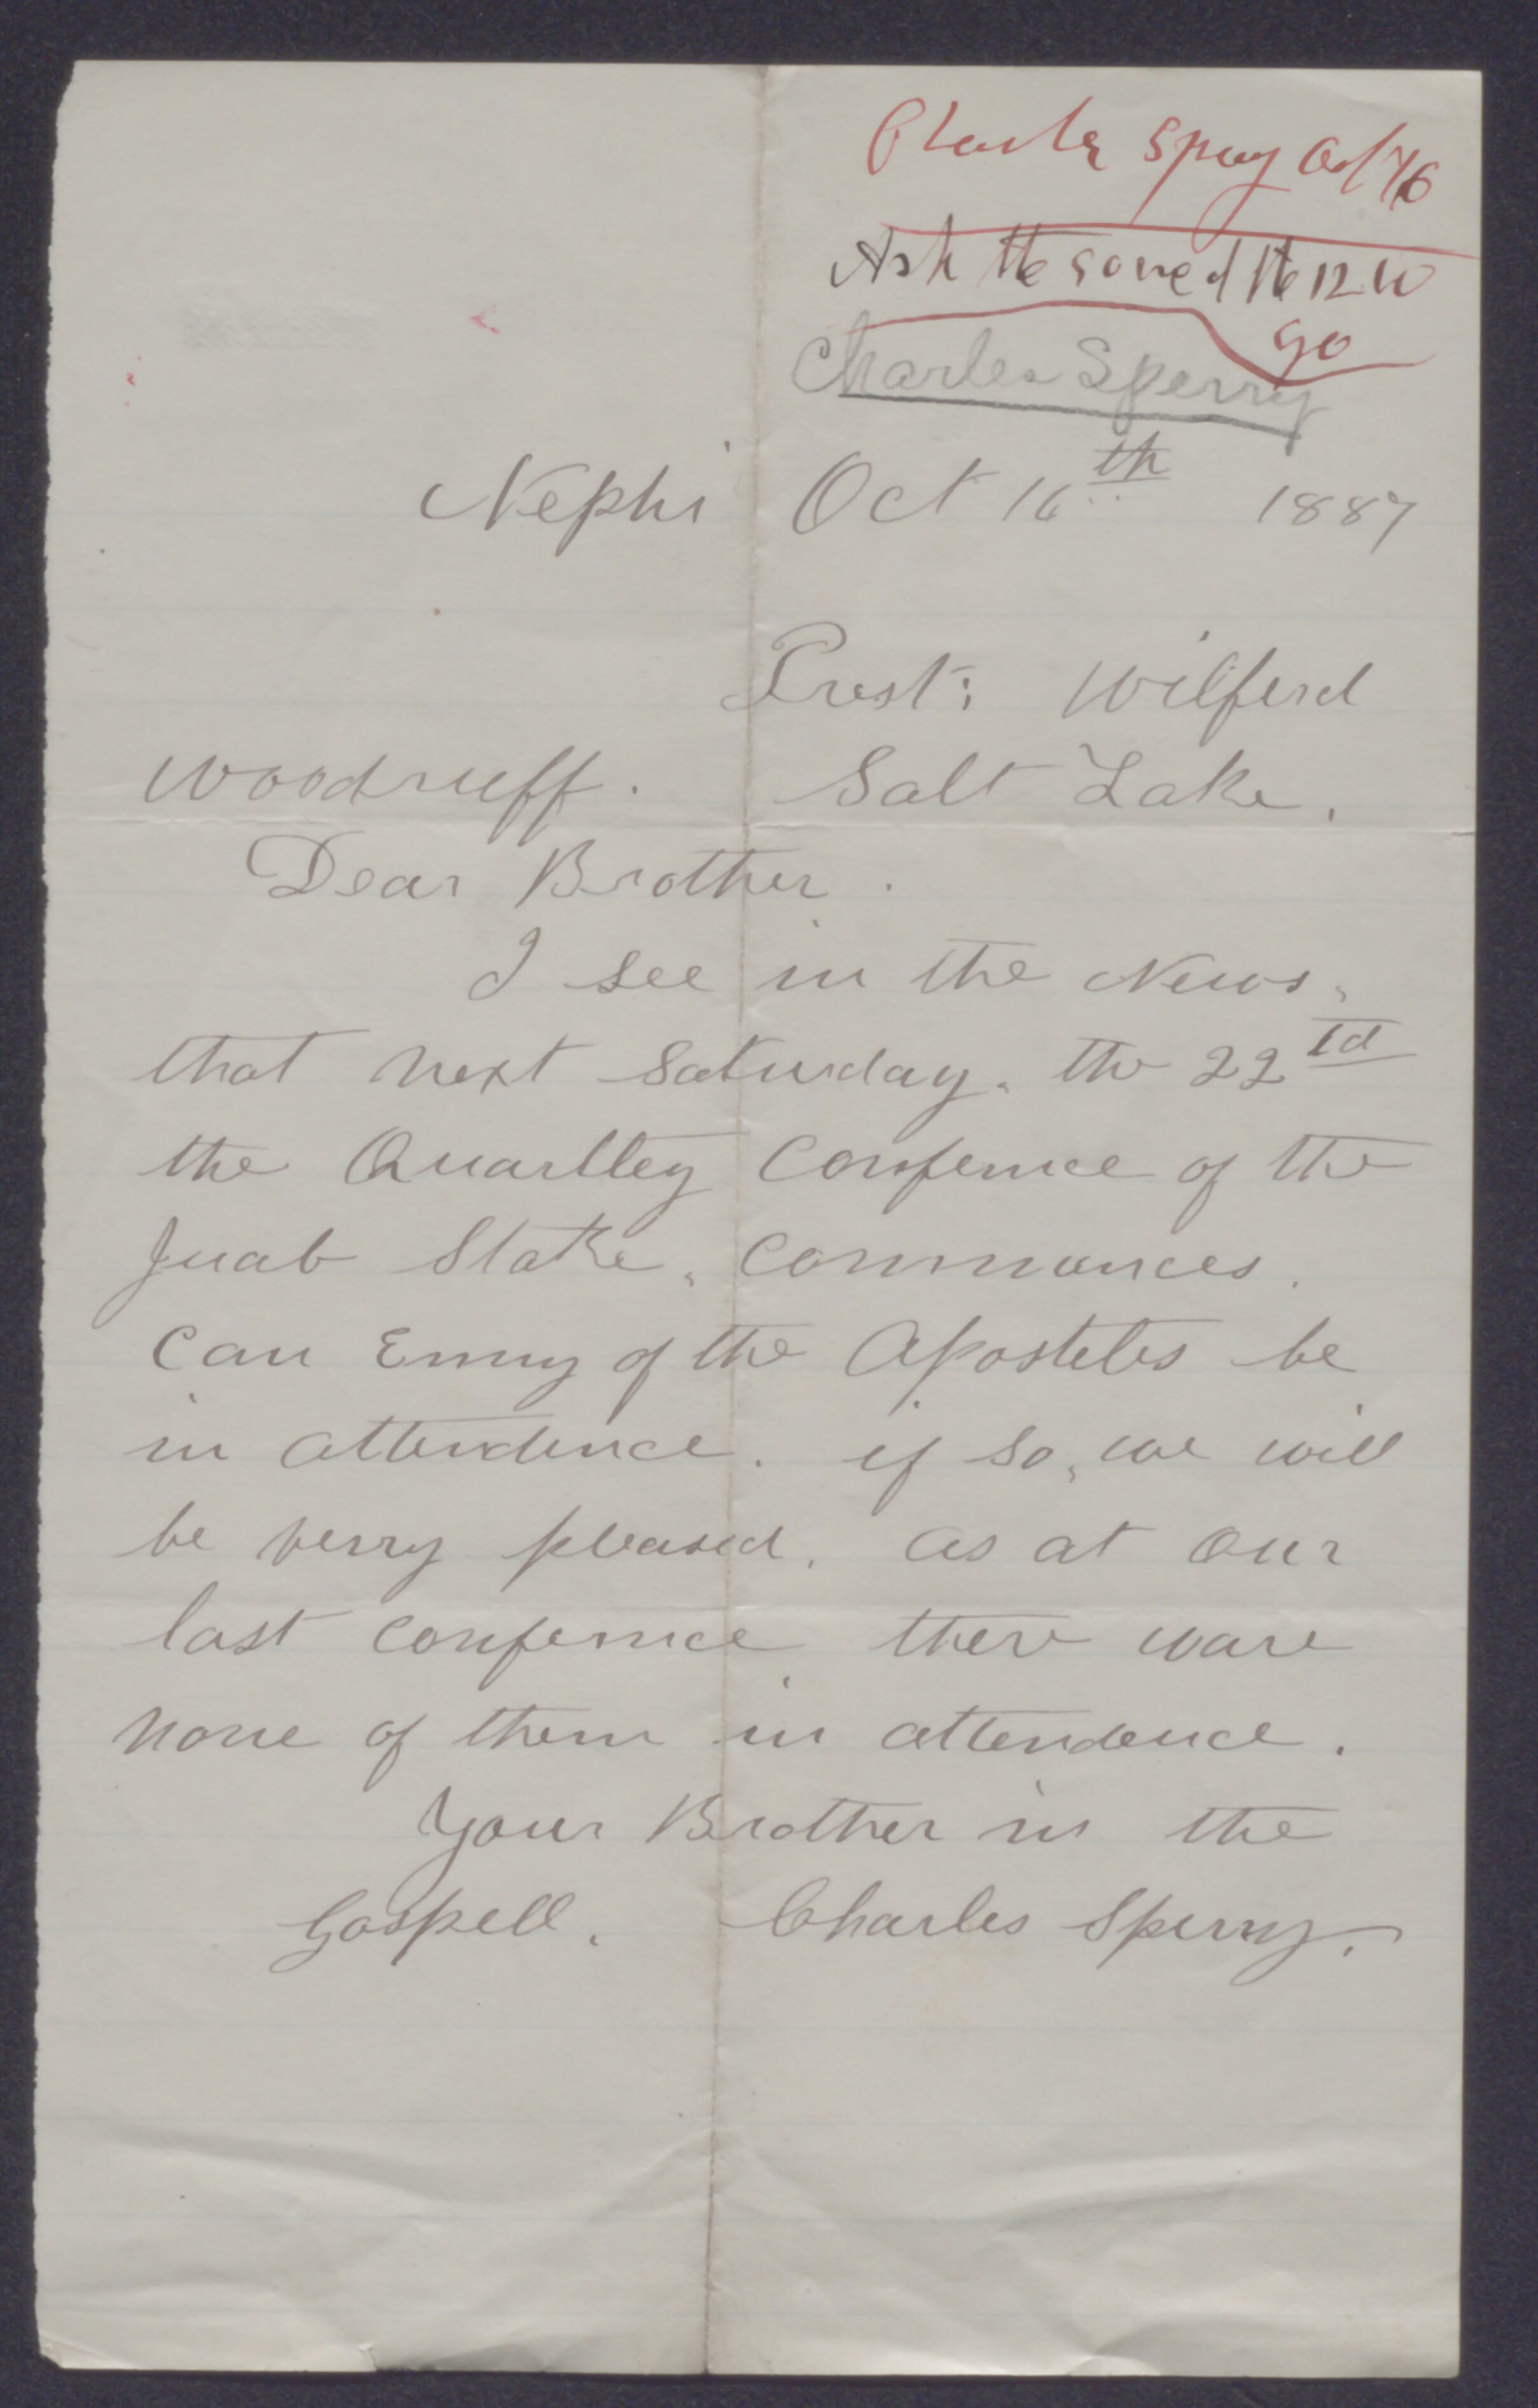 Charles Sperry Oct 16
Ask the some of the 12 to
go
Charles Sperry
Nephi Oct 16th 1887
Prest: Wilferd
Woodruff. Salt Lake.
Dear Brother.
I see in the News,
that next Saturday. the 22td
the Quartley Confernce of the
Juab Stake, Commances.
Can Enny of the Apostels be
in attendence. if so, we will
be verry pleased. as at our
last confernce there ware
none of them in attendence.
Your Brother in the
Gospell. Charles Sperry.